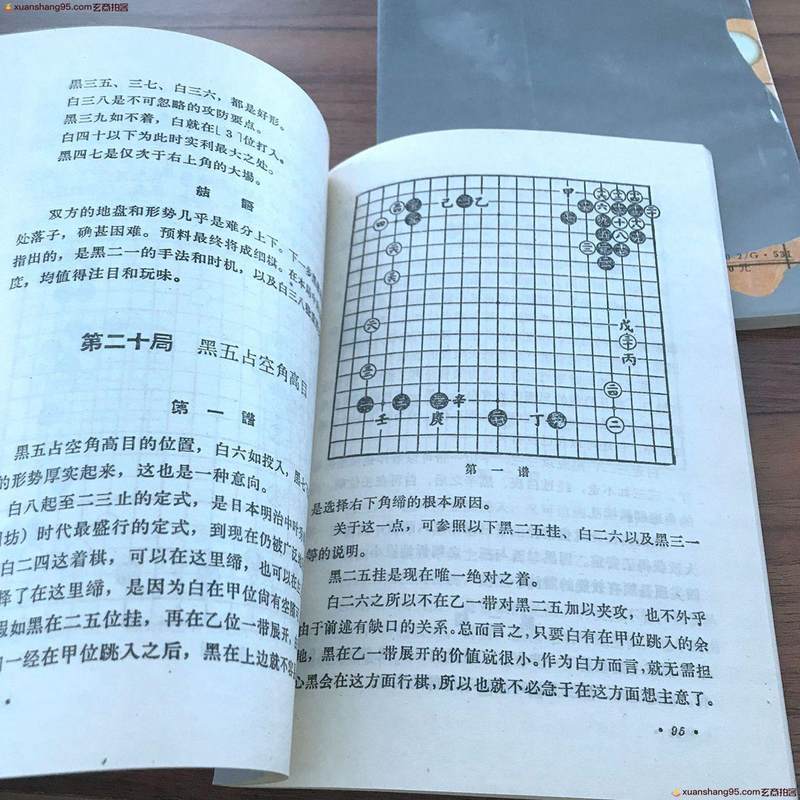 xuanshang95.com玄商拍客
黑三五、三七、白三六，都是好形。
白三八是不可忽略的攻防要点。
黑三九如不着，白就在[3]位打入。
白四十以下为此时实利最大之处。
黑四七是仅次于右上角的大場。
結語
双方的地盘和形势几乎是难分上下。下一
处落子，确甚困难。预料最终将成细棋。在本
指出的，是黑二一的手法和时机，以及白三八
度，均值得注目和玩味。
第二十局 黑五占空角高目
第一譜
黑五占空角高目的位置，白六如投入，黑七
的形势厚实起来，这也是一种意向。
白八起至二三止的定式，是日本明治中叶
坊）时代最盛行的定式，到现在仍被广泛
白二四这着棋，可以在这里缔，也可以在
择了在这里缔，是因为白在甲位尚有空隙
假如黑在二五位挂，再在乙位一带展开，
一经在甲位跳入之后，黑在上边就不
甲
己
乙
戊
丙
丁
辛
庚
壬
第一谱
是选择右下角缔的根本原因。
关于这一点，可参照以下黑二五挂、白二六以及黑三一
等的说明。
黑二五挂是现在唯一绝对之着。
白二六之所以不在乙一带对黑二五加以夹攻，也不外乎
由于前述有缺口的关系。总而言之，只要白有在甲位跳入的余
地，黑在乙一带展开的价值就很小。作为白方而言，就无需担
心黑会在这方面行棋，所以也就不必急于在这方面想主意了。
·95·
xuanshang95.com玄商拍客